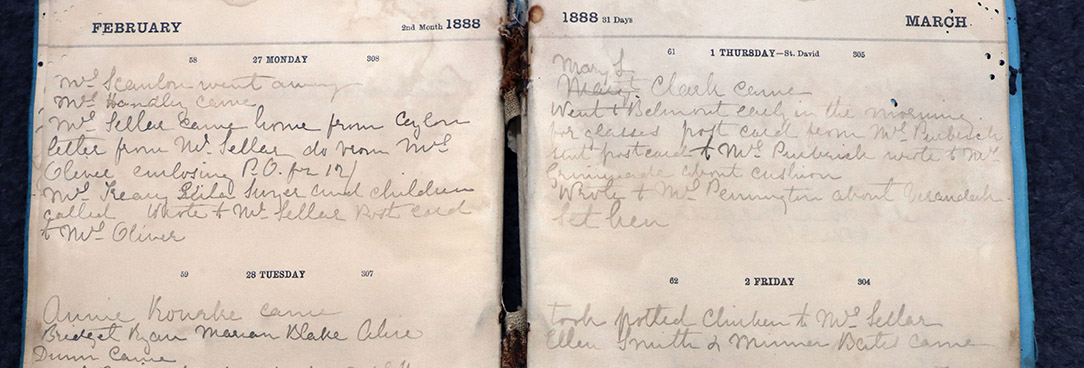 FEBRUARY 2nd Month 1888
58 27 MONDAY 308
Mrs Scanlon went away
Mrs Handley came
Mrs Sellar came home from Ceylon
letter from Mr Sellar do from Mrs
Oliver enclosing P.O. for 12/
Mrs Treacy and children
called Wrote to Mr Sellar Post card
to Mrs Oliver
59 28 TUESDAY 307
Annie Rourke came
Bridget Ryan Marian Blake Alice
Dunn came
1888 31 Days MARCH
61 1 THURSDAY—St. David 305
Mary S
Mary Clark came
Went to Belmont early in the morning
for glasses post card from Mrs Purbrick
sent postcard to Mrs Purbrick wrote to Mrs
about cushion
Wrote to Mr Pennington about verandah
Set hen
62 2 FRIDAY 304
took potted Chicken to Mrs Sellar
Ellen Smith & Minnie Bates came